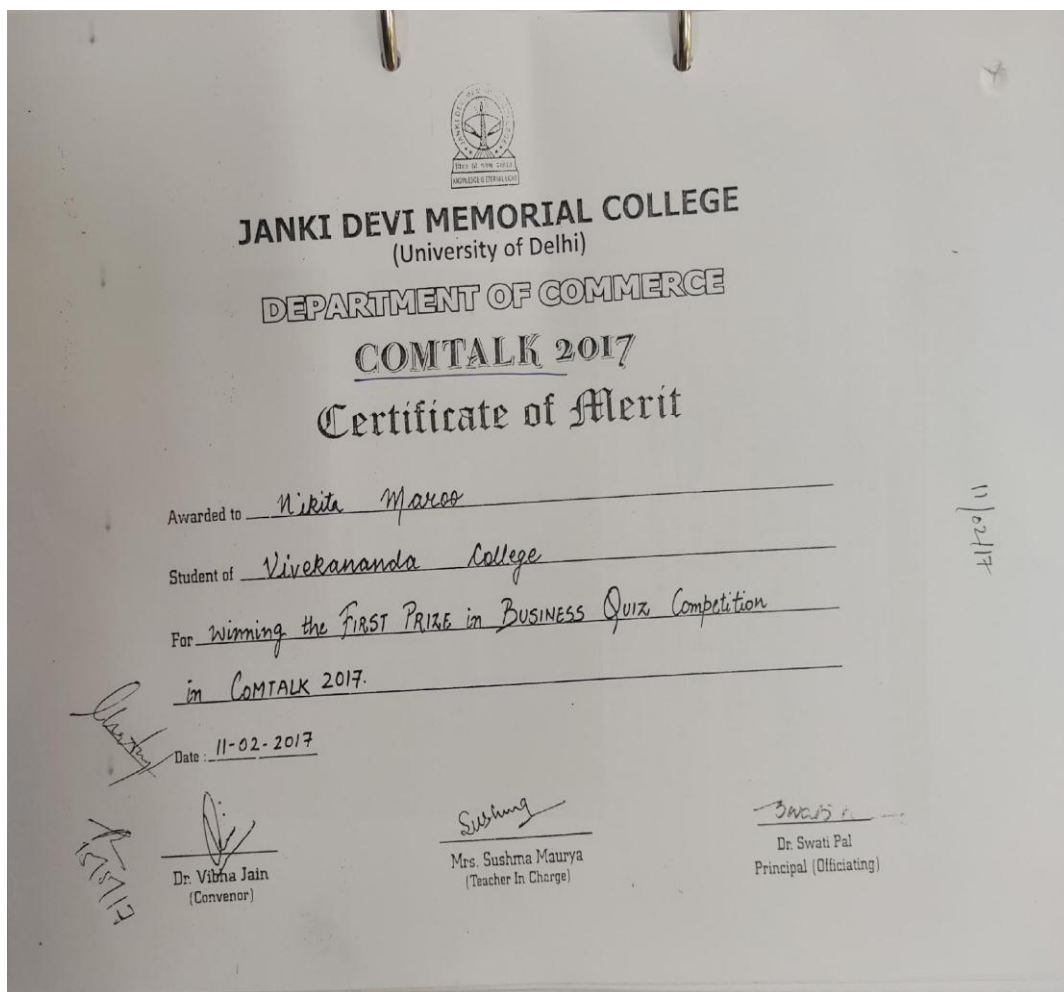 JANKI DEVI MEMORIAL COLLEGE
(University of Delhi)
DEPARTMENT OF COMMERCE
COMTALK 2017
Certificate of Merit
Awarded to Nikita Maroo
Student of Vivekananda College
For Winning the FIRST PRIZE in BUSINESS QUIZ Competition
in COMTALK 2017.
Date : 11-02-2017
11/02/17
Sushma
Dr. Vibha Jain
(Convenor)
Mrs. Sushma Maurya
(Teacher In Charge)
Dr. Swati Pal
Principal (Officiating)